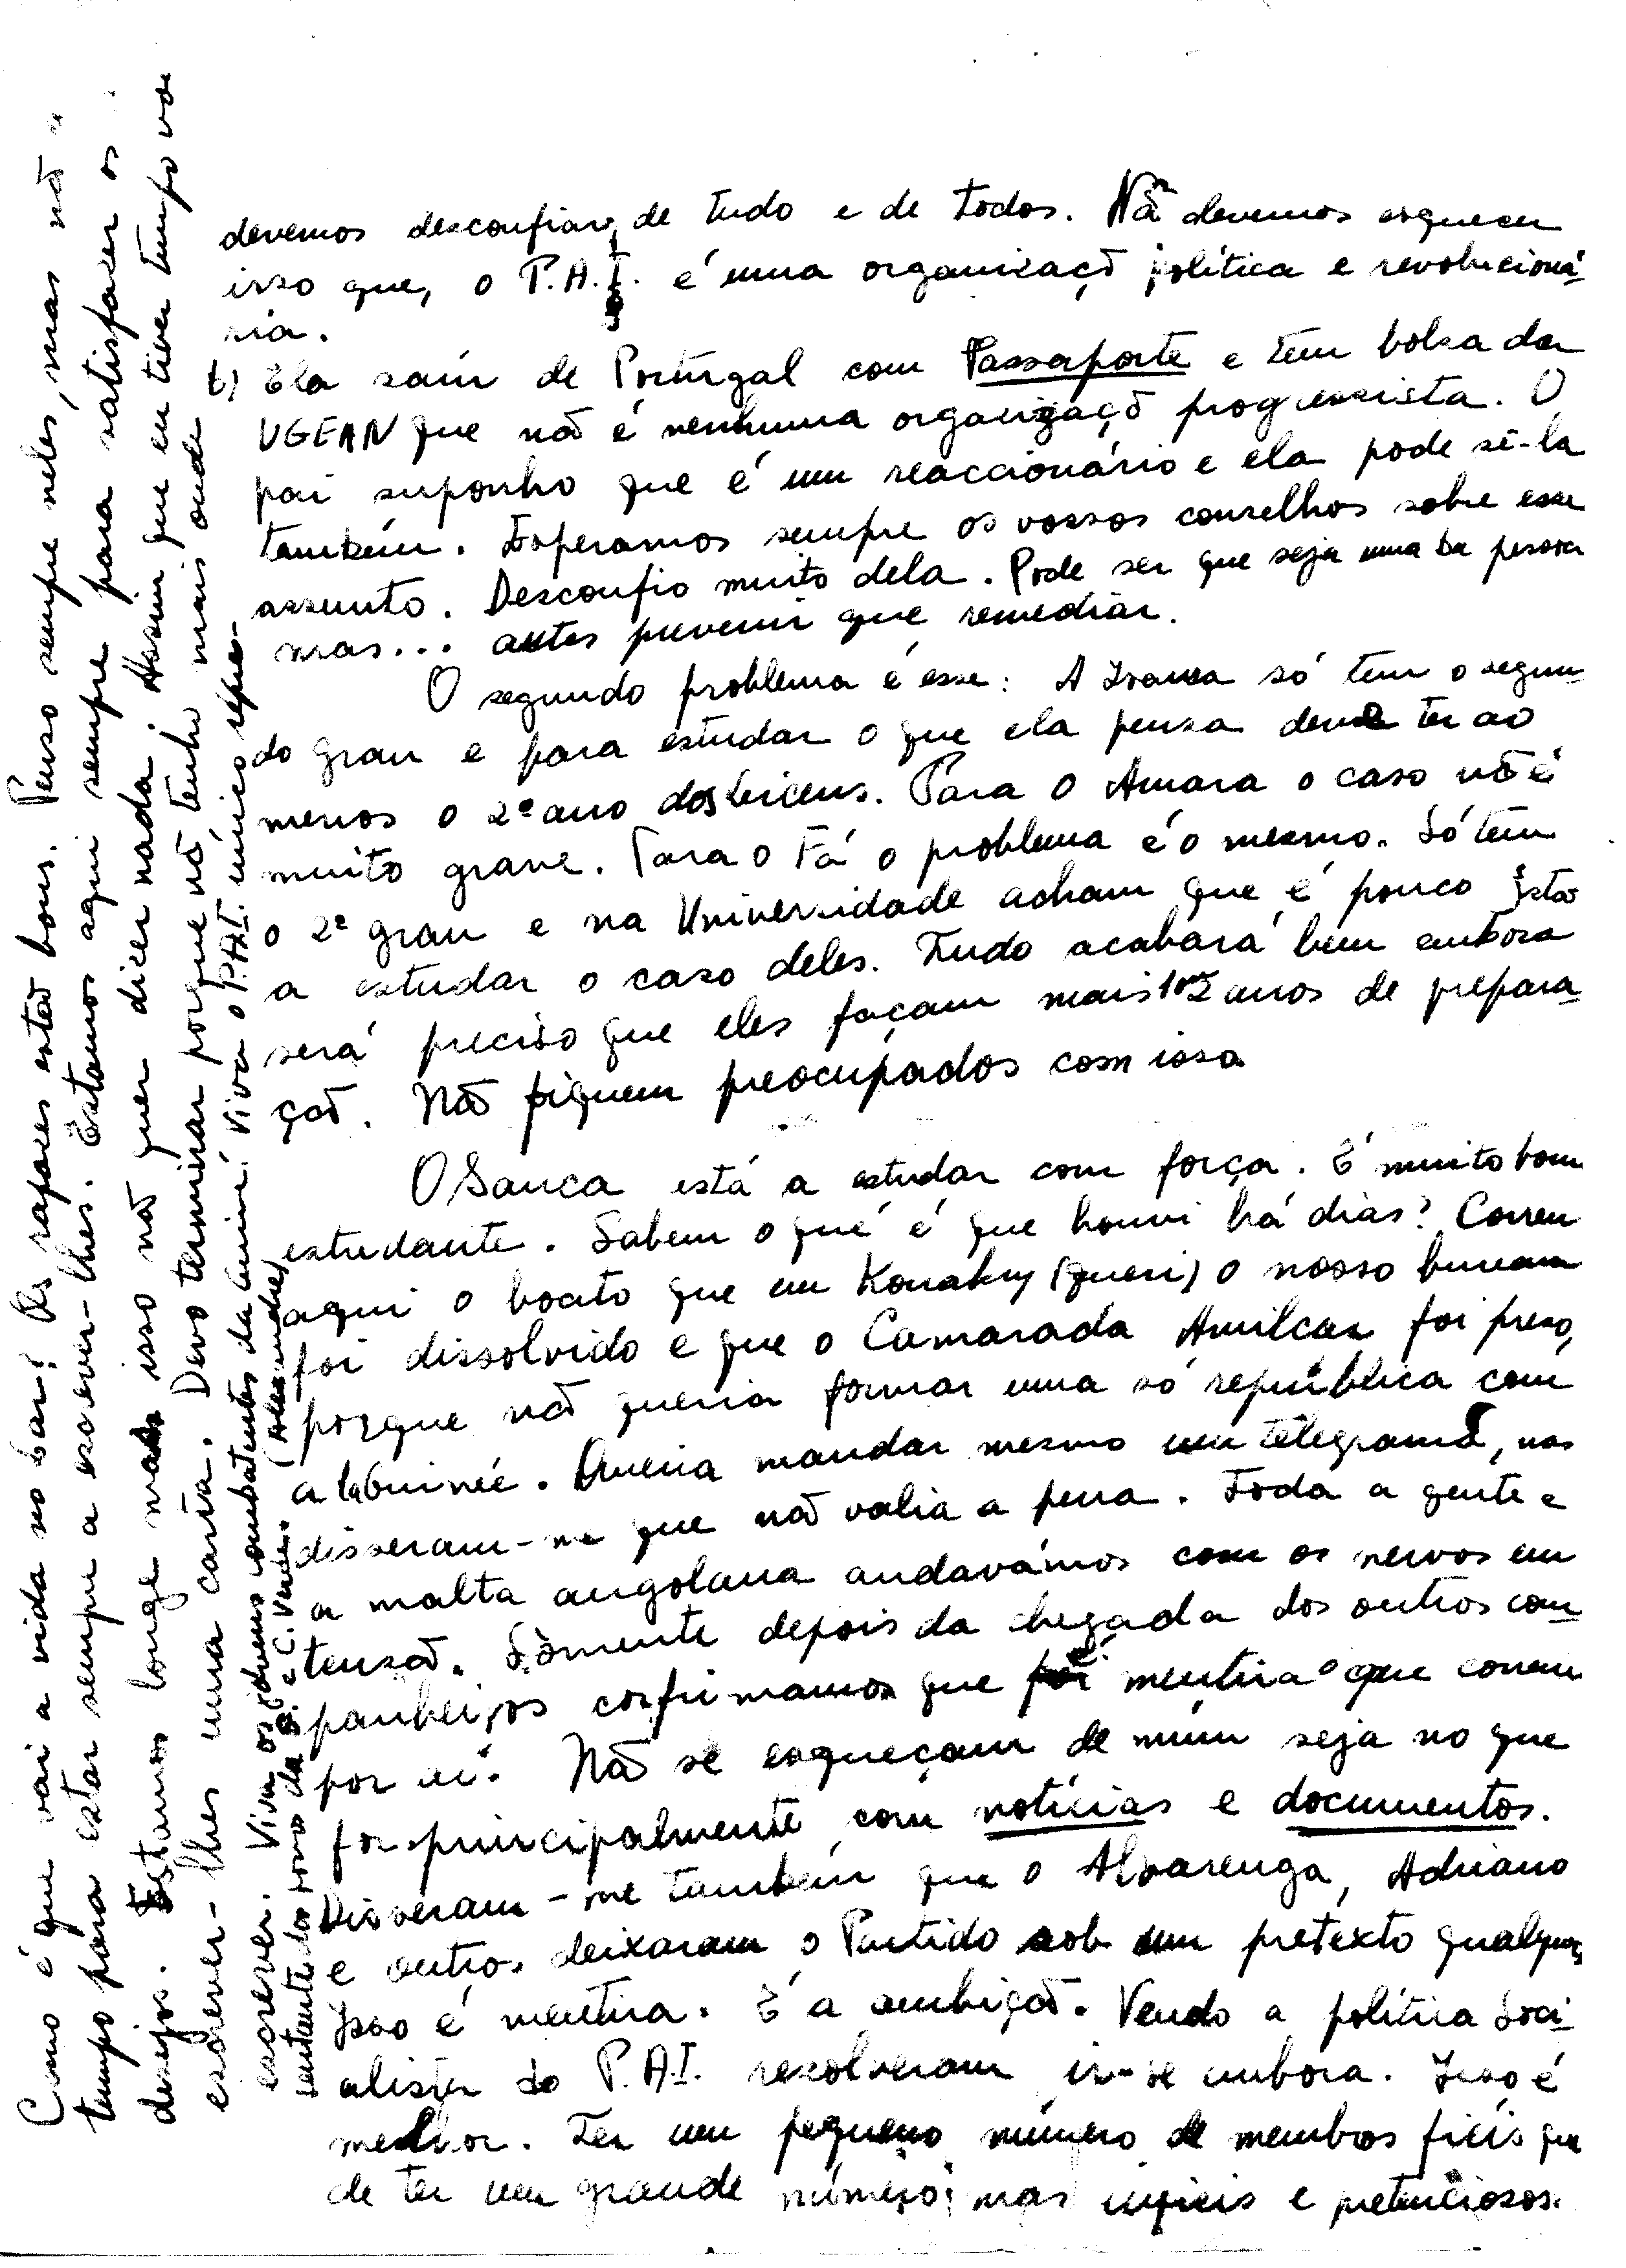 devemos desconfiar, de tudo e de todos. Não devemos esquecer
isso que, o P.A.I. é uma organizaçõ política e revolucioná-
ria.
b) Ela saíu de Portugal com Passaporte e tem bolsa da
UGEAN que não é nenhuma organizaçõ progressista. O
pai suponho que é um reaccionário e ela pode sê-la
também. Esperamos sempre os vossos conselhos sobre esse
assunto. Desconfio muito dela. Pode ser que seja uma boa pessoa
mas... antes prevenir que remediar.
O segundo problema é esse: A só tem o segun-
do grau e para estudar o que ela pensa deve ter ao
menos o 2º ano dos liceus. Para o Amara o caso não é
muito grave. Para o Fá o problema é o mesmo. Só tem
o 2º grau e na Universidade acham que é pouco Estão
a estudar o caso deles. Tudo acabará bem embora
será preciso que eles façam mais 1 ou 2 anos de prepara-
ção. Não fiquem preocupados com isso
O Sanca está a estudar com força. É muito bom
estudante. Sabem o que é que houvi há dias? Correu
aqui o boato que em Konakry (Gueri) o nosso bureau
foi dissolvido e que o Camarada Amilcar foi preso,
porque não queria formar uma só república com
a laGuinée. Queria mandar mesmo um telegrama, mas
disseram-me que não valia a pena. Toda a gente e
a malta angolana andavámos com os nervos em
tensão. Sòmente depois da chegada dos outros com-
panheiros confirmamos que foi mentira o que correu
por aí. Não se esqueçam de mim seja no que
for principalmente com notícias e documentos.
Disseram-me também que o Alvarenga, Adriano
e outros deixaram o Partido sob um pretexto qualquer,
Isso é mentira. É a ambição. Vendo a política Soci-
alista do P.A.I. resolveram ir-se embora. Isso é
melhor. Ter um pequeno número de membros fiéis que
de ter um grande número, mas infieis e pretenciosos.
Como é que vai a vida no bar? Os rapazes estão bons. Penso sempre neles, mas não
tempo para estar sempre a escrever-lhes. Estamos aqui sempre para satisfazer os
desejos. Estamos longe mas isso não quer dizer nada. Assim que eu tiver tempo vou
escrever-lhes uma carta. Devo terminar porque não tenho mais onde
escrever. Viva os jovens combatentes da Guiné. Viva o P.A.I. único repre-
sentante do povo da G. e C. Verde. (Alexandre)